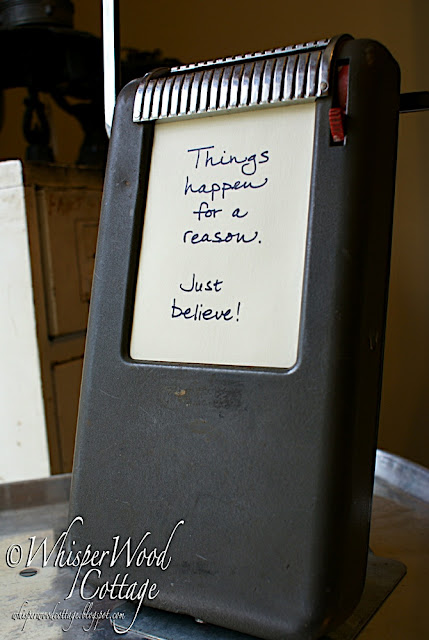 Things
happen
for a
reason.
Just
believe!
© WhisperWood
Cottage
whisperwoodcottage.blogspot.com